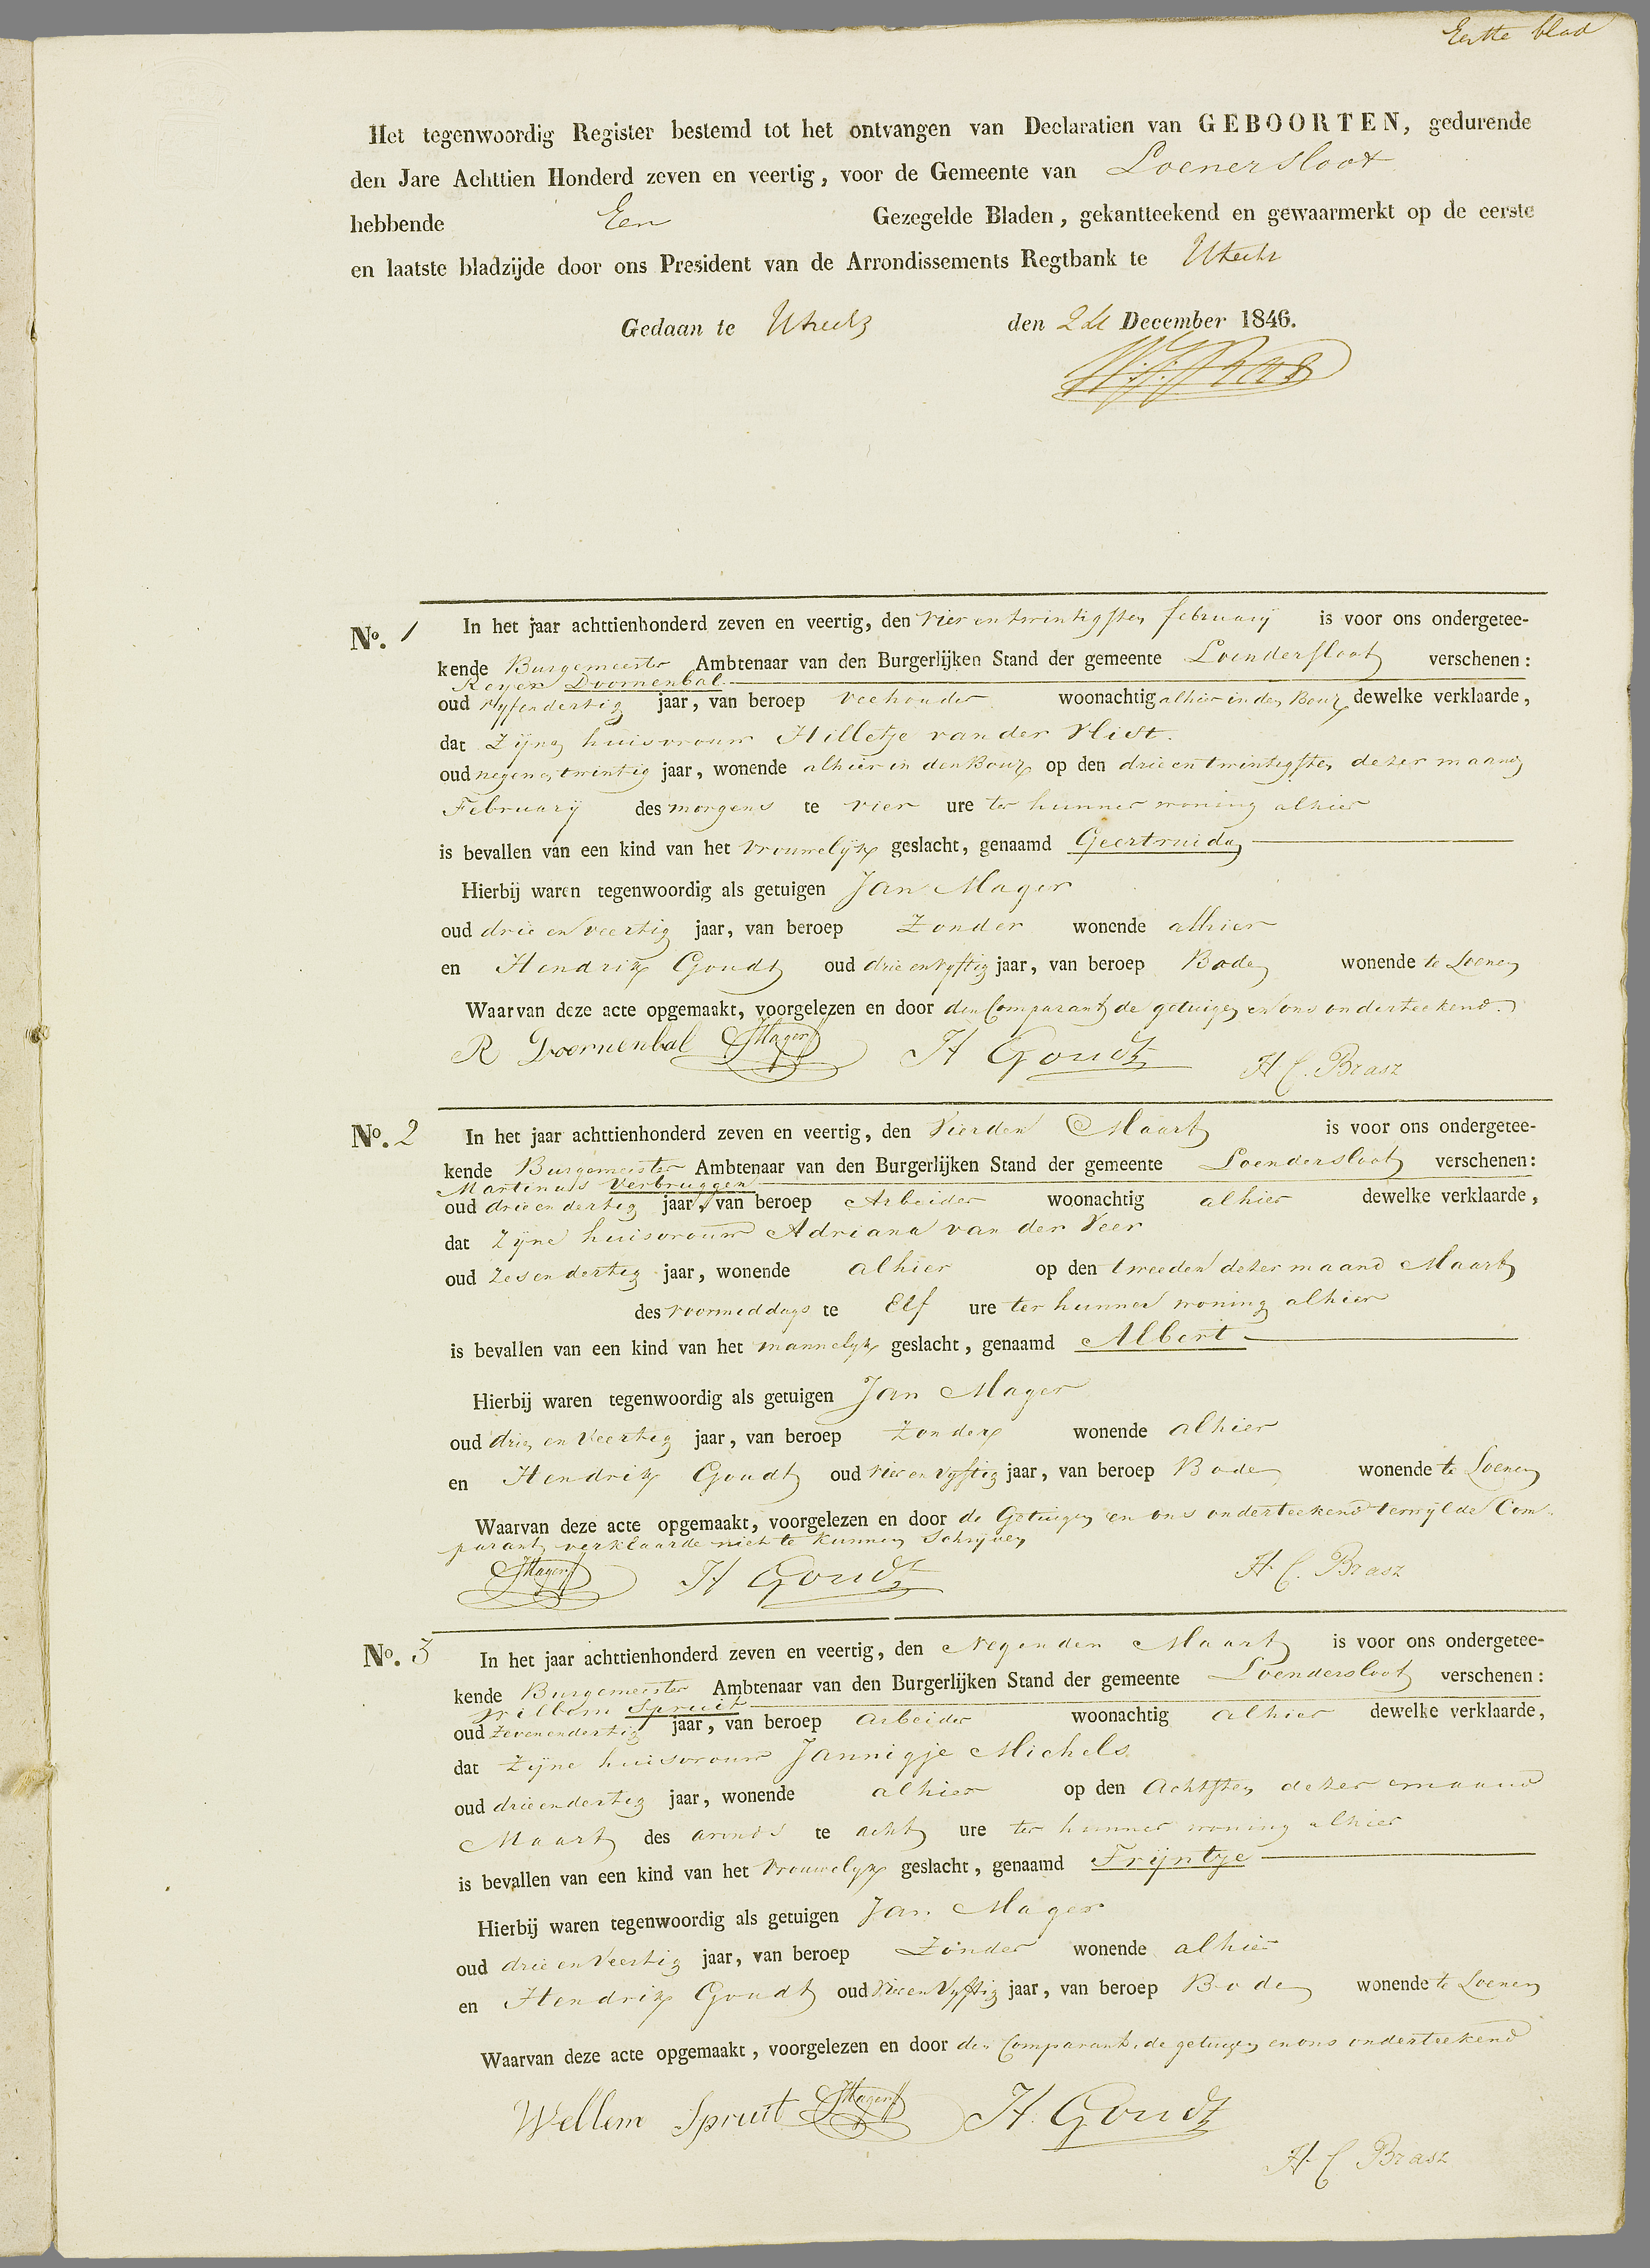 Eerste blad
Het tegenwoordig Register bestemd tot het ontvangen van Declaratien van GEBOORTEN, gedurende
den Jare Achttien Honderd zeven en veertig, voor de Gemeente van Loenersloot
hebbende Een Gezegelde Bladen, gekantteekend en gewaarmerkt op de eerste
en laatste bladzijde door ons President van de Arrondissements Regtbank te Utrecht
Gedaan te Utrecht den December 1846.
No. 1 In het jaar achttienhonderd zeven en veertig, den vier en twintigsten february is voor ons ondergetee-
kende Burgemeester Ambtenaar van den Burgerlijken Stand der gemeente Loendersloot verschenen:
Reyer Doornenbal
oud vyfendertig jaar, van beroep veehouder woonachtig alhier in den dewelke verklaarde,
dat Zijne huisvrouw Hilletje van der Vliet.
oud negenentwintig jaar, wonende alhier in den op den drie en twintigsten dezer maand
February des morgens te vier ure ter hunner woning alhier
is bevallen van een kind van het vrouwelijk geslacht, genaamd Geertruida
Hierbij waren tegenwoordig als getuigen Jan Mager
oud drie en veertig jaar, van beroep Zonder wonende alhier
en Hendrik Goudt oud drie en vyftig jaar, van beroep Bode wonende te Loenen
Waarvan deze acte opgemaakt, voorgelezen en door den Comparant de getuigen en ons onderteekend.
R Doornenbal JMager H Goudt H. C. Brasz
No. 2 In het jaar achttienhonderd zeven en veertig, den Vierden Maart is voor ons ondergetee-
kende Burgemeester Ambtenaar van den Burgerlijken Stand der gemeente Loendersloot verschenen:
Martinus Verbruggen
oud drie en dertig jaar, van beroep Arbeider woonachtig alhier dewelke verklaarde,
dat Zijne huisvrouw Adriana van der Veer
oud zesendertig jaar, wonende alhier op den tweeden dezer maand Maart
des voormiddags te Elf ure ter hunner woning alhier
is bevallen van een kind van het mannelyk geslacht, genaamd Albert
Hierbij waren tegenwoordig als getuigen Jan Mager
oud drie en Veertig jaar, van beroep Zonder wonende alhier
en Hendrik Goudt oud vier en vyftig jaar, van beroep Bode wonende te Loenen
Waarvan deze acte opgemaakt, voorgelezen en door de Getuigen en ons onderteekend terwijl de Com-
parant verklaarde niet te kunnen Schrijven
JMager H Goudt H. C. Brasz
No. 3 In het jaar achttienhonderd zeven en veertig, den Negenden Maart is voor ons ondergetee-
kende Burgemeester Ambtenaar van den Burgerlijken Stand der gemeente Loendersloot verschenen:
Willem Spruit
oud Zevenendertig jaar, van beroep Arbeider woonachtig alhier dewelke verklaarde,
dat Zijne huisvrouw Jannigje Michels
oud drieendertig jaar, wonende alhier op den Achtsten dezer maand
Maart des avonds te acht ure ter hunner woning alhier
is bevallen van een kind van het Vrouwelyk geslacht, genaamd Trijntje
Hierbij waren tegenwoordig als getuigen Jan Mager
oud drie en Veertig jaar, van beroep Zonder wonende alhier
en Hendrik Goudt oud Vier en Vyftig jaar, van beroep Bode wonende te Loenen
Waarvan deze acte opgemaakt, voorgelezen en door den Comparant, de getuigen en ons onderteekend
Wellem Spruit JMager H. Goudt
H C Brasz